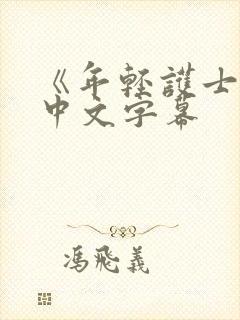 《年轻護士
中文字幕
馮飛義